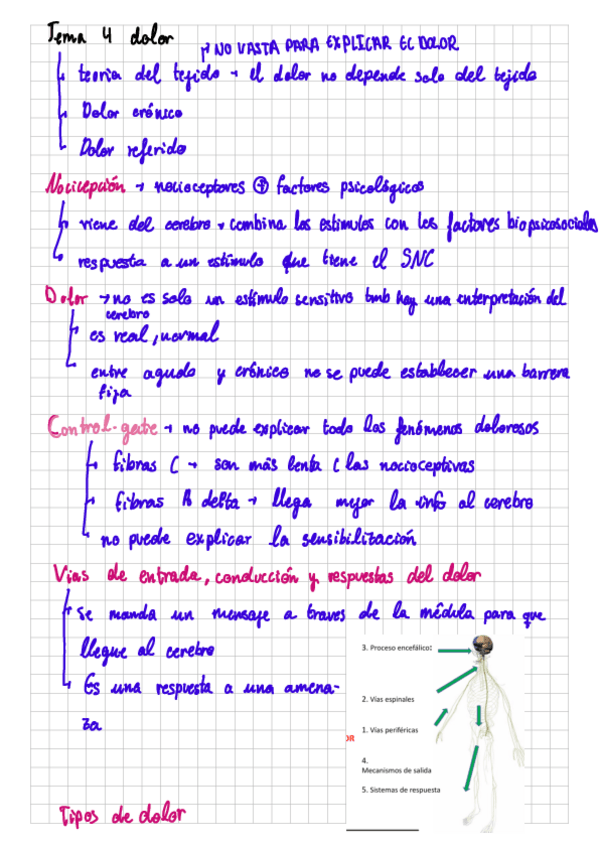 Tema 4 dolor
NO VASTA PARA EXPLICAR EL DOLOR
teoria del tejido → el dolor no depende solo del tejido
Dolor crónico
Dolor referido
Nocicepción → nocioceptores + factores psicológicos
viene del cerebro → combina los estimulos con los factores biopsicosociales
respuesta a un estímulo que tiene el SNC
Dolor → no es solo un estímulo sensitivo tmb hay una interpretación del
cerebro
es real, normal
entre agudo y crónico no se puede establecer una barrera
fija
Control-gate → no puede explicar todo los fenómenos dolorosos
fibras C → son más lenta ( las nocioceptivas
fibras A delta → llega mejor la info al cerebro
no puede explicar la sensibilización
Vias de entrada, conducción y respuestas del dolor
se manda un mensaje a traves de la médula para que
llegue al cerebro
Es una respuesta a una amena-
za
3. Proceso encefálico:
2. Vías espinales
1. Vías periféricas
OR
4.
Mecanismos de salida
5. Sistemas de respuesta
Tipos de dolor